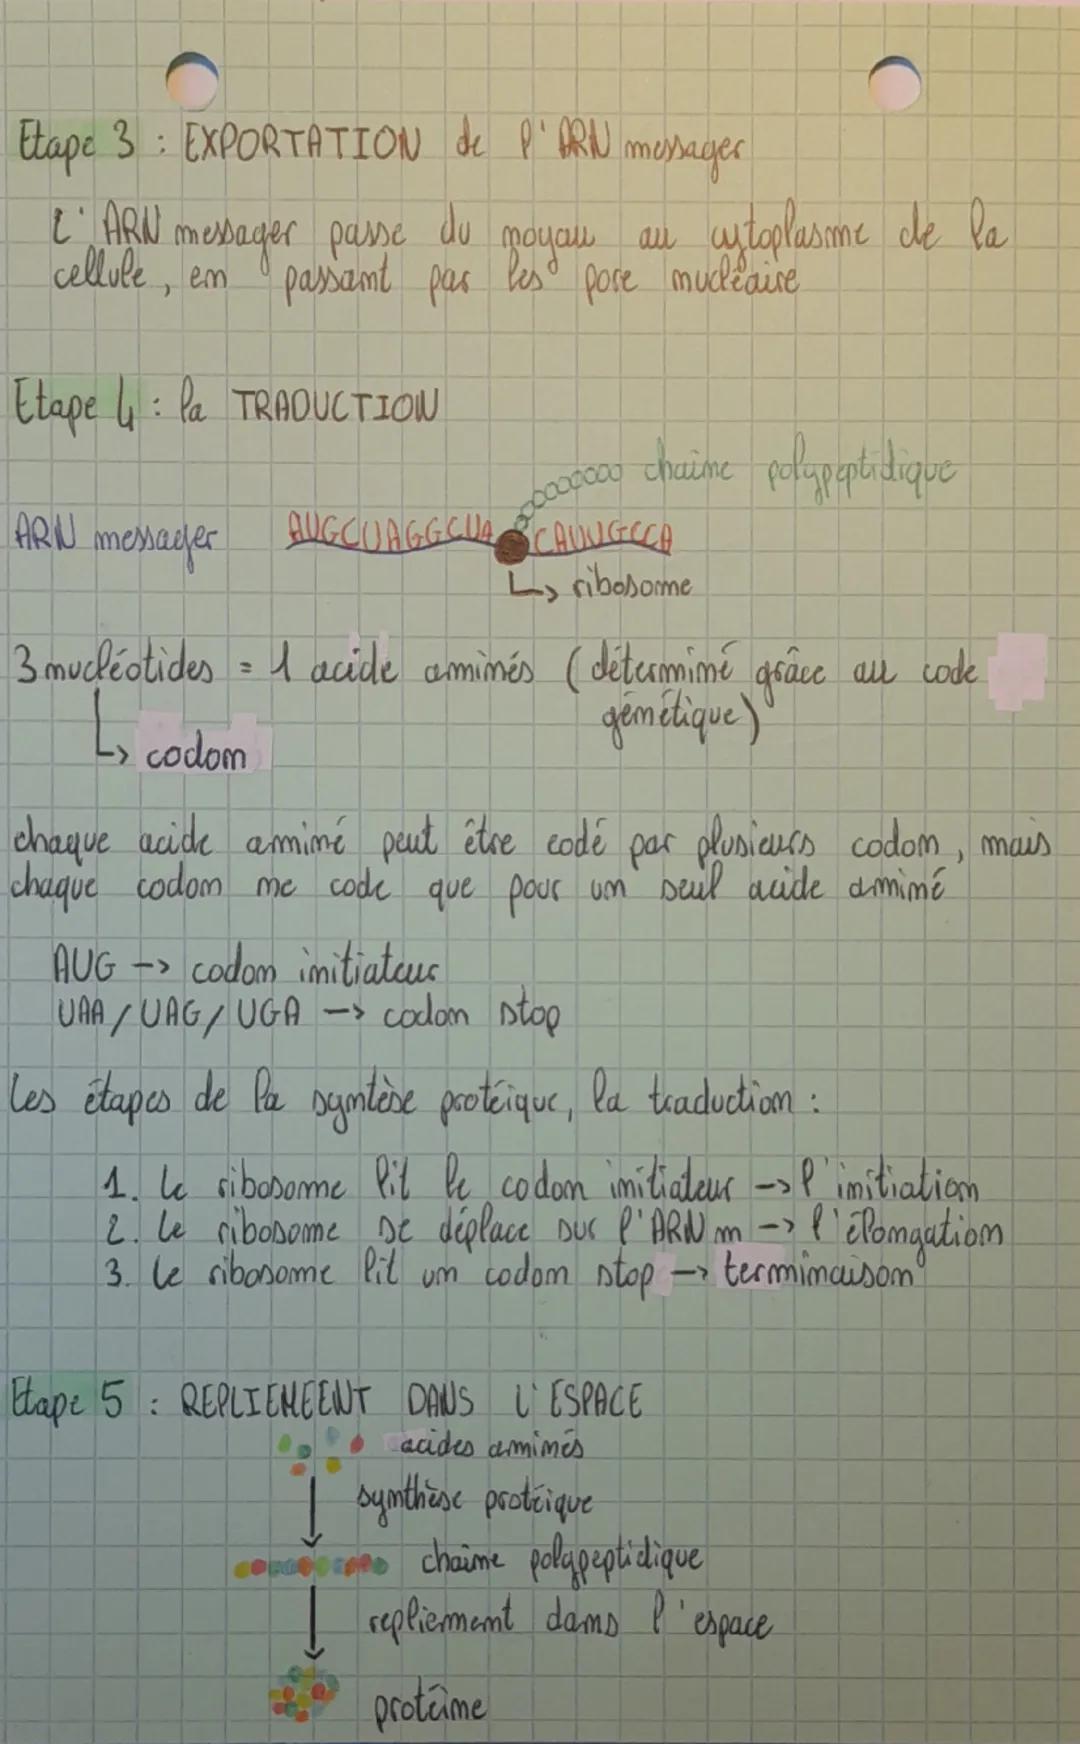 Etape 3 : EXPORTATION de l'ARN messager
L'ARN messager passe du noyau au cytoplasme de la
cellule, en passant par les pore nucléaire
Etape 4 : la TRADUCTION
chaine polypeptidique
ARN messager AUGCUAGGCUA CAUUGCCA
↳ ribosome
3 nucléotides = 1 acide aminés (déterminé grâce au code
génétique)
↳ codon
chaque acide aminé peut être codé par plusieurs codon, mais
chaque codon ne code que pour un seul acide aminé
AUG -> codon initiateur
UAA/UAG/UGA -> codon stop
Les étapes de la syntèse protéique, la traduction :
1. Le ribosome lit le codon initiateur -> l'initiation
2. Le ribosome se déplace sur l'ARN m -> l'élongation
3. Le ribosome lit un codon stop -> terminaison
Etape 5 : REPLIEMEENT DANS L'ESPACE
acides aminés
synthèse protéique
chaine polypeptidique
repliemment dans l'espace
protéine